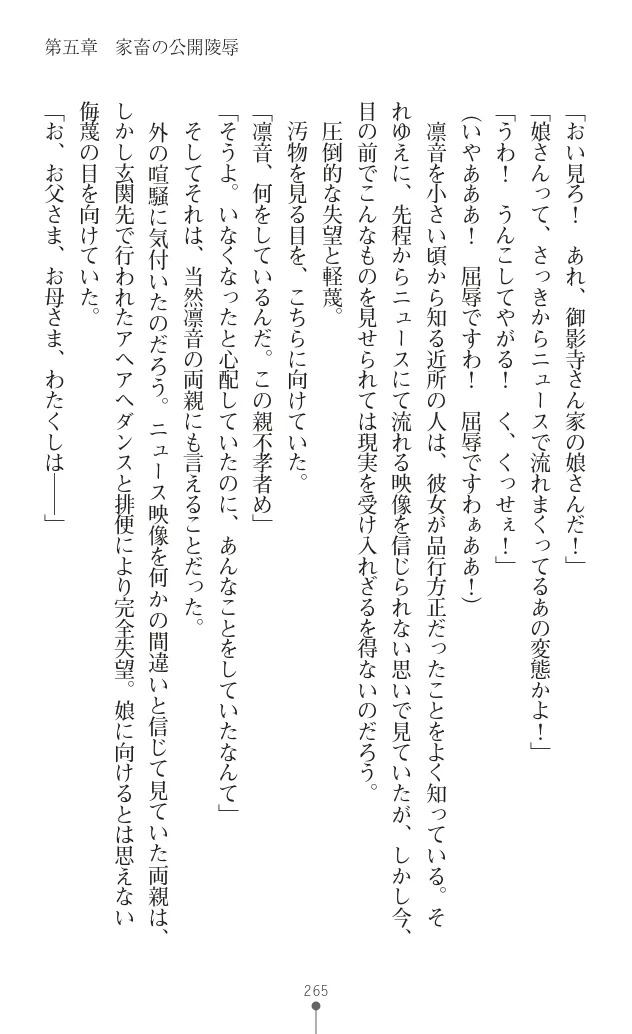 第五章　家畜の公開陵辱
「おい見ろ！　あれ、御影寺さん家の娘さんだ！」
「娘さんって、さっきからニュースで流れまくってるあの変態かよ！」
「うわ！　うんこしてやがる！　く、くっせぇ！」
（いやあああ！　屈辱ですわ！　屈辱ですわぁああ！）
　凛音を小さい頃から知る近所の人は、彼女が品行方正だったことをよく知っている。そ
れゆえに、先程からニュースにて流れる映像を信じられない思いで見ていたが、しかし今、
目の前でこんなものを見せられては現実を受け入れざるを得ないのだろう。
　圧倒的な失望と軽蔑。
　汚物を見る目を、こちらに向けていた。
「凛音、何をしているんだ。この親不孝者め」
「そうよ。いなくなったと心配していたのに、あんなことをしていたなんて」
　そしてそれは、当然凛音の両親にも言えることだった。
　外の喧騒に気付いたのだろう。ニュース映像を何かの間違いと信じて見ていた両親は、
しかし玄関先で行われたアヘアヘダンスと排便により完全失望。娘に向けるとは思えない
侮蔑の目を向けていた。
「お、お父さま、お母さま、わたくしは――」
265